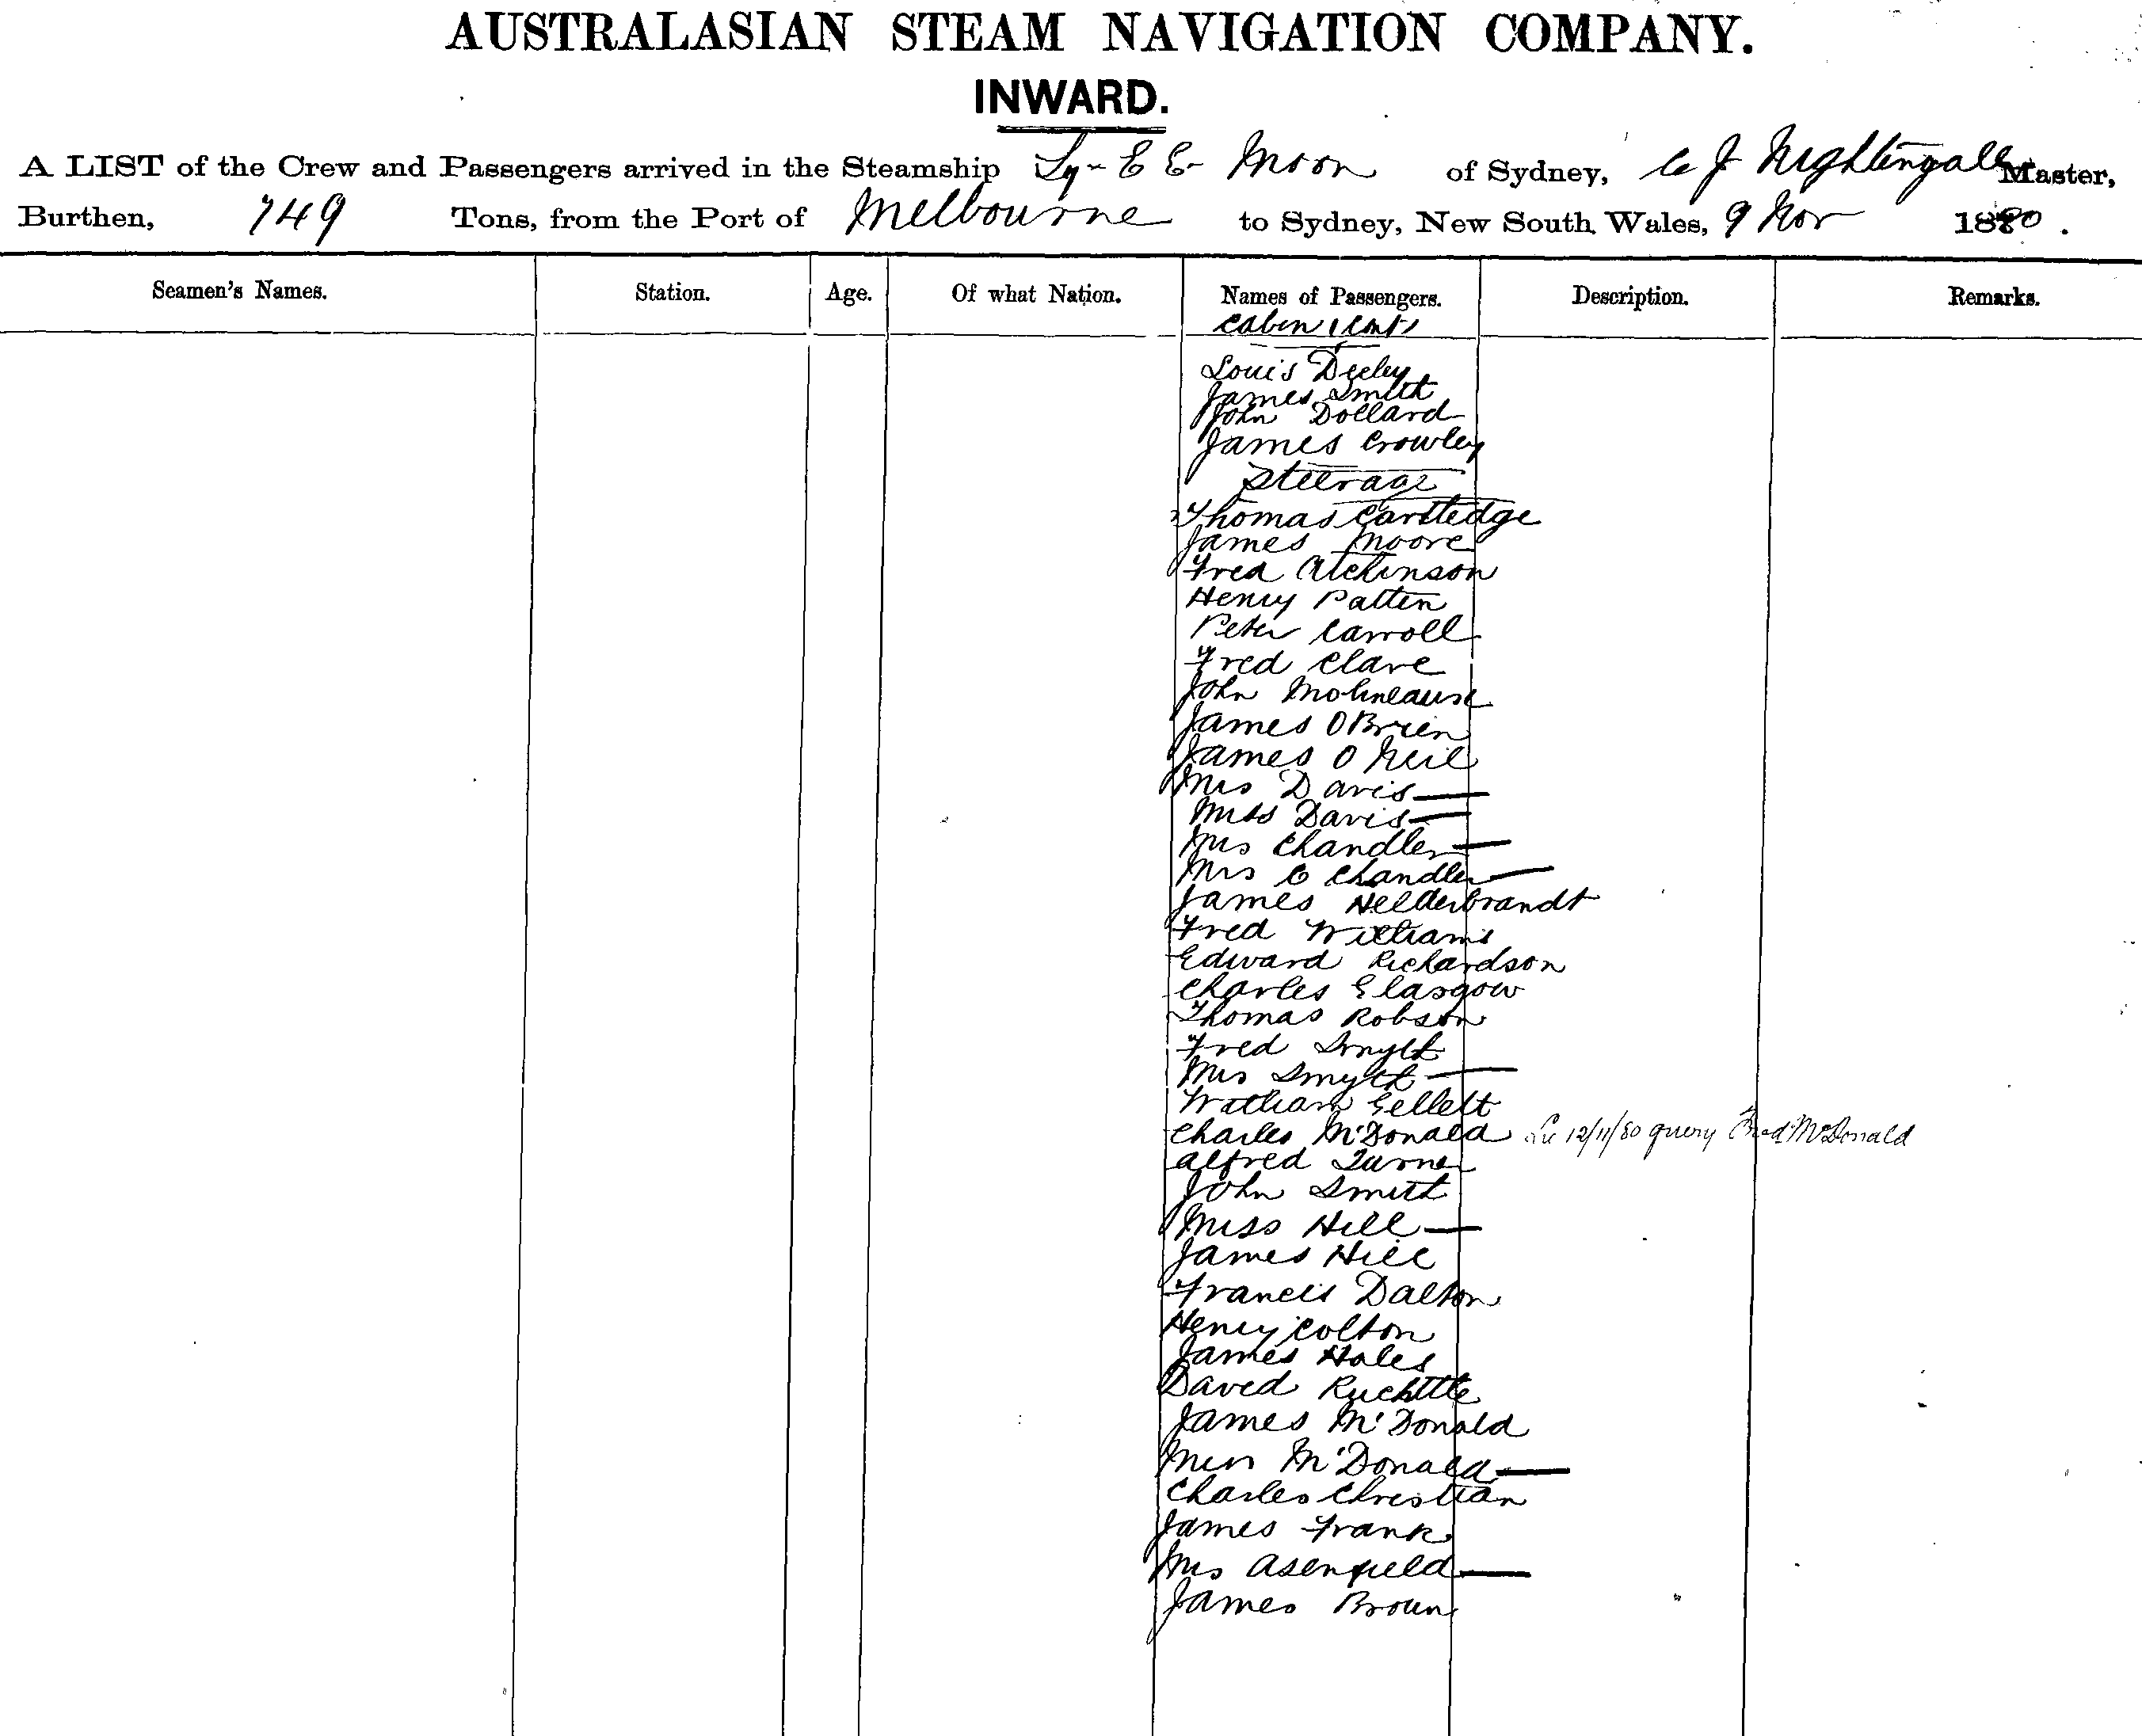 AUSTRALASIAN STEAM NAVIGATION COMPANY.
INWARD.
A LIST of the Crew and Passengers arrived in the Steamship Ly-EE-Moon of Sydney, C J Nightingale Master,
Burthen, 749 Tons, from the Port of Melbourne to Sydney, New South Wales, 9 Nov 1880.
Seamen's Names. Station. Age. Of what Nation. Names of Passengers. Description. Remarks.
Cabin
Louis Deeley
James Smith
John Dollard
James Crowley
Steerage
Thomas Cartledge
James Moore
Fred Atchinson
Henry Patten
Peter Carroll
Fred Clare
John
James OBrien
James O Neil
Mrs Davis —
Miss Davis —
Mrs Chandler —
Mrs C Chandler —
James Helderbrandt
Fred Williams
Edward Richardson
Charles Glasgow
Thomas Robson
Fred Smyth
Mrs Smyth —
William Gellett
Charles McDonald 12/11/80 query Fred McDonald
Alfred Turner
John Smith
Miss Hill —
James Hill
Francis Dalton
Henry Colton
James Hales
David
James McDonald
Miss McDonald —
Charles Christian
James Frank
Mrs Asenfield —
James Broun